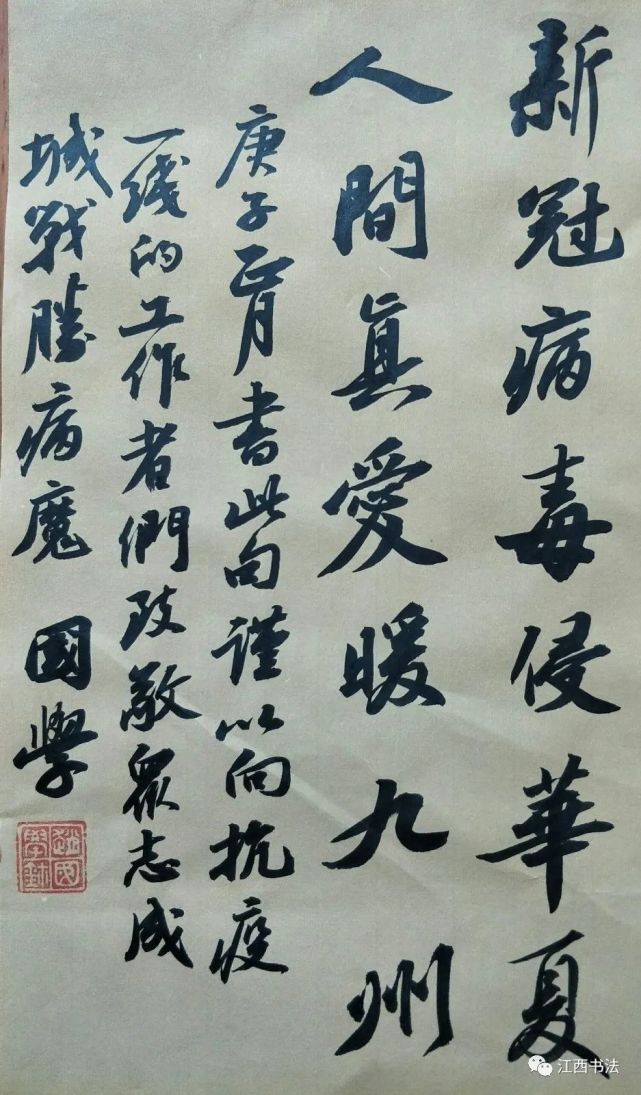 新冠病毒侵華夏
人間真愛暖九州
庚子正月書此句謹以向抗疫
一綫的工作者們致敬眾志成
城戰勝病魔 國學
江西书法